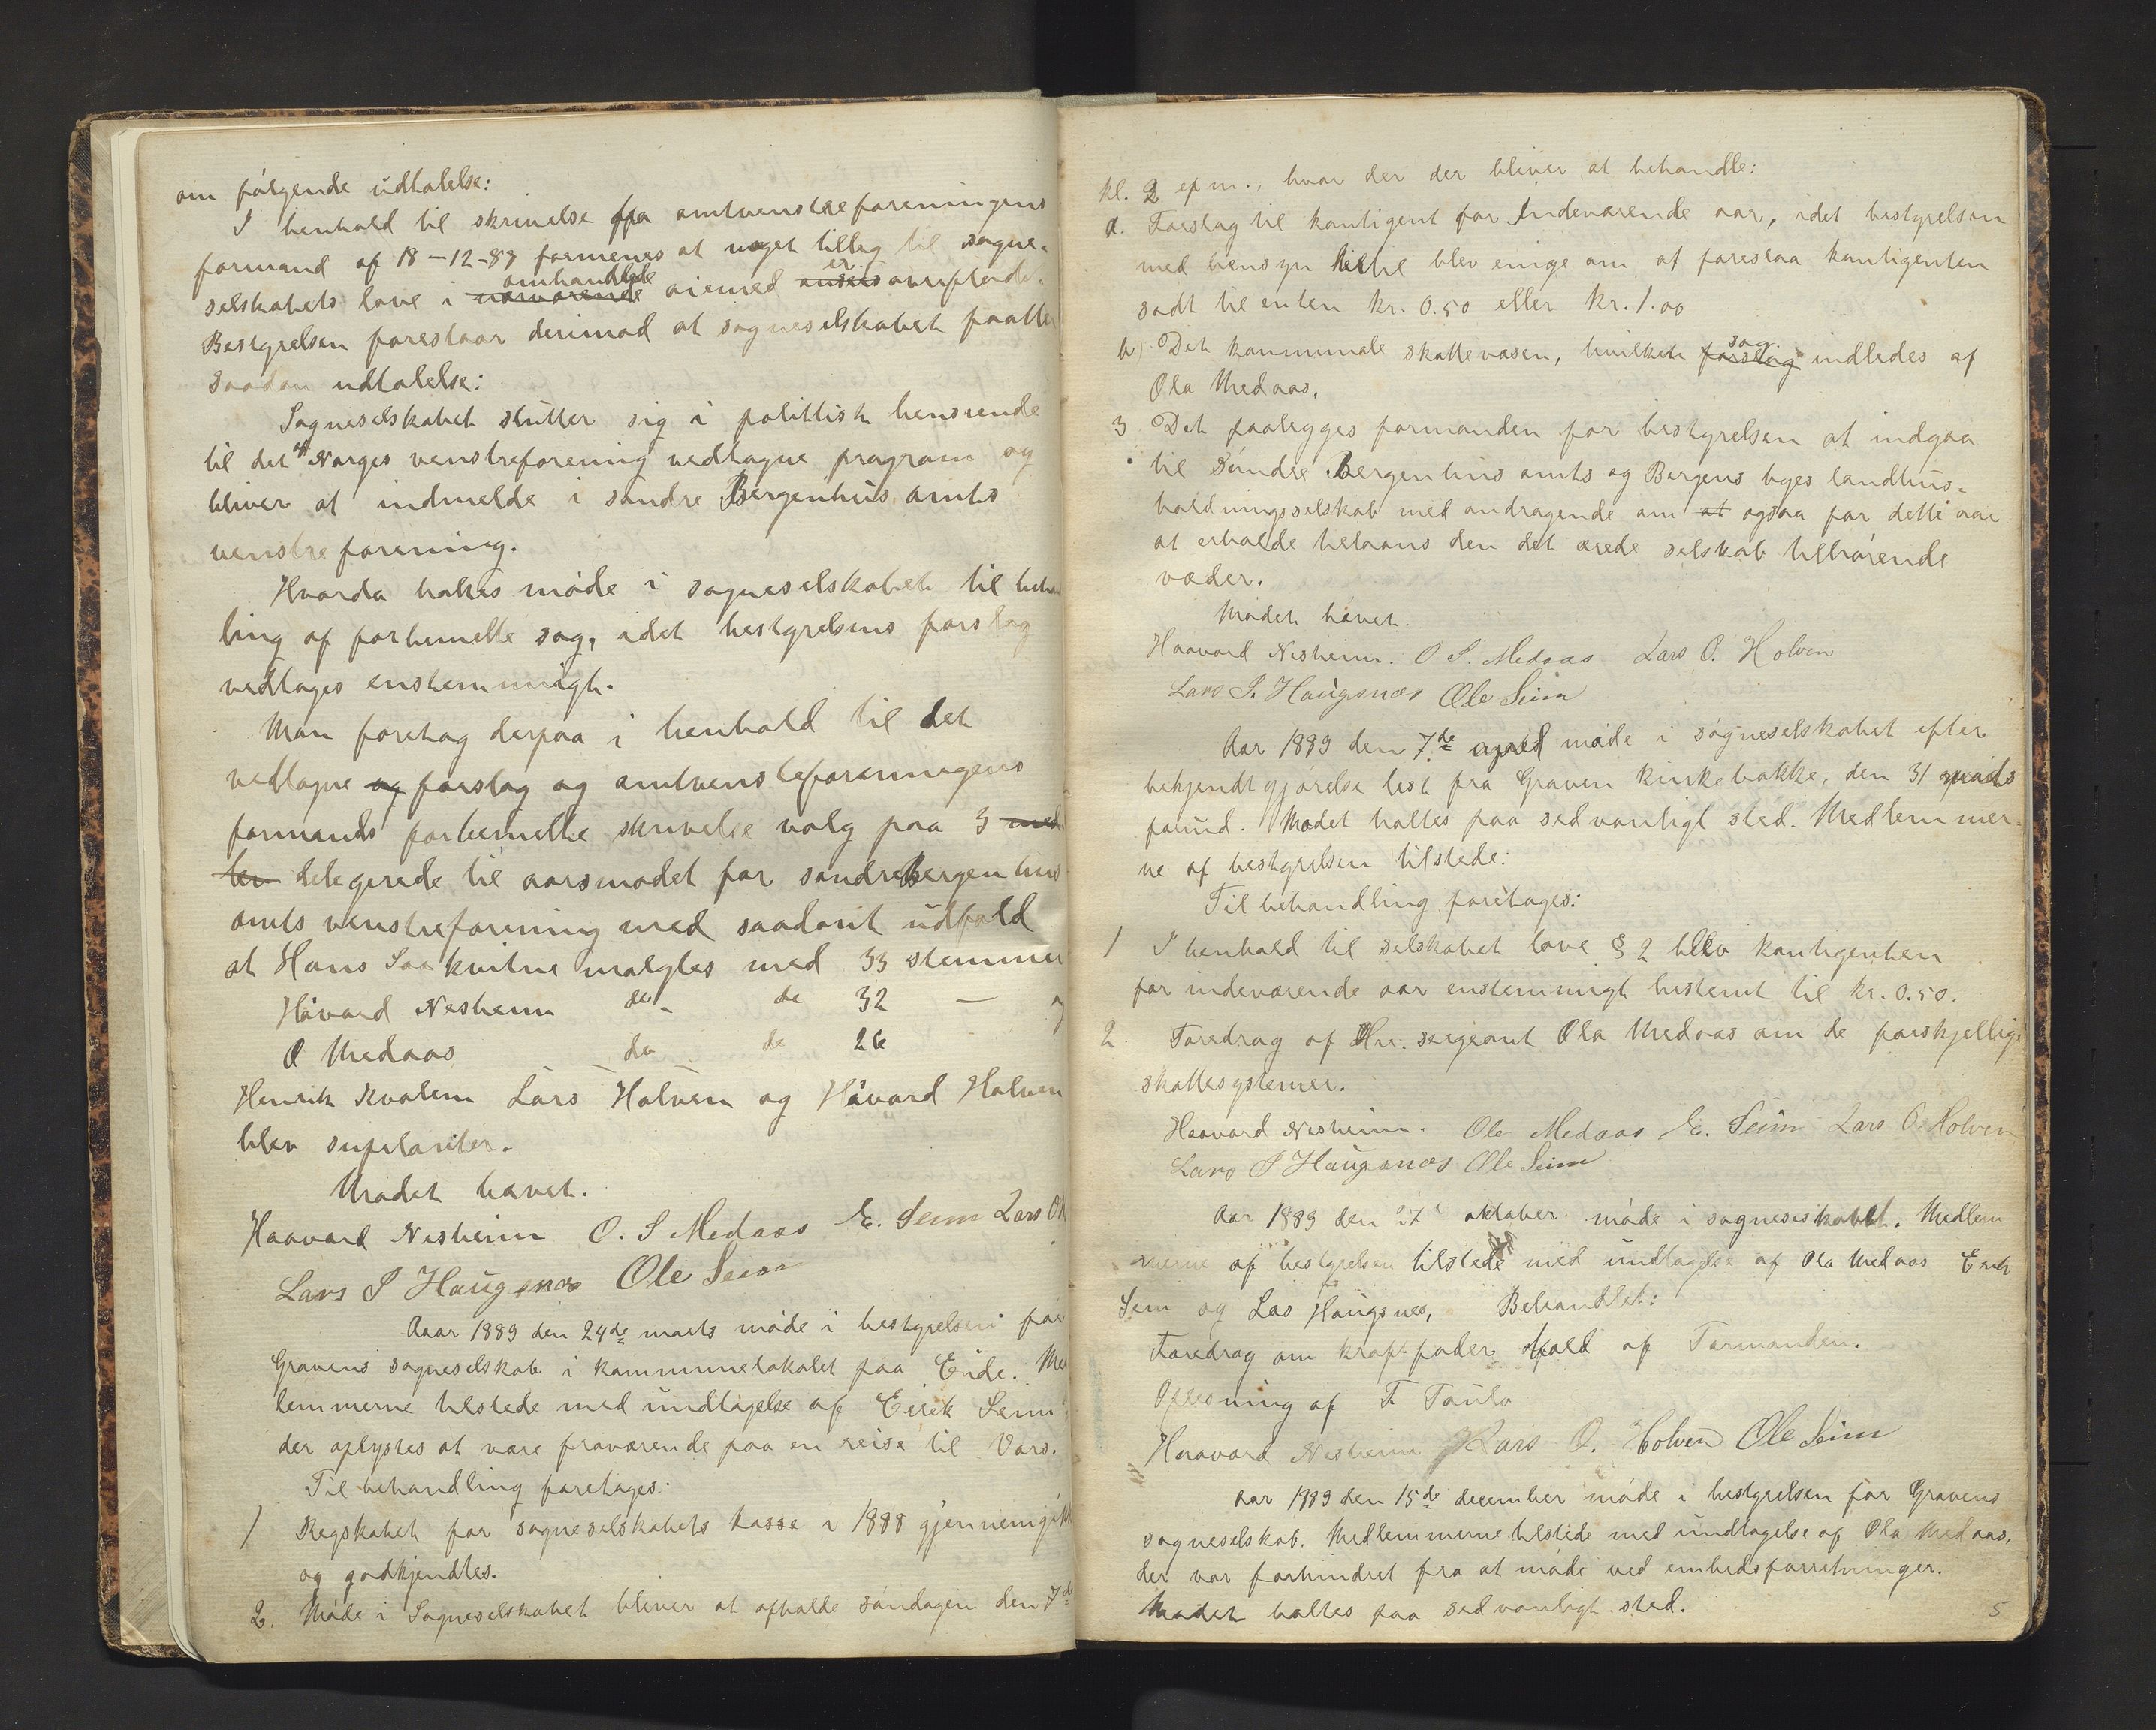 om følgende udtalelse:
I henhold til skrivelse fra amtvenstreforeningens
formand af 18-12-88 formenes at noget tillæg til sogne-
selskabets love i nærværende omhandlede øiemed ansees er
Bestyrelsen foreslaar derimod at sogneselskabet fatter
saadan udtalelse:
Sogneselskabet slutter sig i politisk henseende
til det af Norges venstreforening vedtagne program og
bliver at indmelde i søndre Bergenhus amts
venstreforening.
Hvorda holtes møde i sogneselskabet til behand
ling af forbemelte sag, idet bestyrelsens forslag
vedtages enstemmigt.
Man foretog derpaa i henhold til det
vedtagne og forslag og amtvenstreforeningens
formands forbemelte skrivelse valg paa 3 med
ler delegerede til aarsmødet for søndre Bergenhus
amts venstreforening med saadant udfald
at Hans Saakvitne valgtes med 33 stemmer
Håvard Nesheim do do 32 — og
O Medaas do do 26
Henrik Kvalem Lars Holven og Håvard Holven
blev suplanter.
Mødet hævet.
Haavard Nesheim O. S Medaas E. Seim Lars O H
Lars P Haugsnæs Ole Seim
Aaar 1889 den 24de marts møde i bestyrelsen for
Gravens sogneselskab i kommunelokalet paa Eide. Med
lemmerne tilstede med undtagelse af Eirik Seim
der oplystes at være fraværende paa en reise til Vors.
Til behandling foretages:
1 Regskabet for sogneselskabets kasse i 1888 gjennemgikk
og godkjendtes.
2. Møde i Sogneselskabet bliver at afholde søndagen den 7de
kl. 2 efm., hvor der der bliver at behandle:
a. Forslag til kontigent for indeværende aar, idet bestyrelsen
med hensyn hertil blev enige om at foreslaa kontigenten
sadt til enten kr. 0.50 eller kr. 1.00
b) Det kommunale skattevæsen, hvilket forslag sag indledes af
Ola Medaas.
3 Det paalegges formanden for bestyrelsen at indgaa
til Søndre Bergenhus amts og Bergens byes landhus-
holdningsselskab med andragende om at ogsaa for dette aar
at erholde tillaans den det ærede selskab tilhørende
væder.
Mødet hævet.
Haavard Nesheim. O S. Medaas Lars O. Holven
Lars P. Haugsnæs Ole Seim
Aar 1889 den 7de april møde i sogneselskabet efter
bekjendtgjørelse lest fra Graven kirkebakke, den 31 marts
forud. Mødet holtes paa sedvanligt sted. Medlemmer-
ne af bestyrelsen tilstede:
Til behandling foretages:
1 I henhold til selskabet love § 2 blev kontigenten
for indeværende aar enstemmigt bestemt til kr. 0.50.
2. Foredrag af Hr. sergeant Ola Medaas om de forskjellige
skattesystemer.
Haavard Nesheim. Ole Medaas E. Seim Lars O. Holven
Lars P Haugsnæs Ole Seim
Aar 1889 den oktober møde i sogneselskabet. Medlem
merne af bestyrelsen tilstede med undtagelse af Ola Medaas Erik
Seim og Las Haugsnes, Behandlet:
Foredrag om kraftfoder af Formanden.
Oplesning af T. Taulo
Haavard Nesheim Lars O. Holven Ole Seim
Aar 1889 den 15de december møde i bestyrelsen for Gravens
sogneselskab. Medlemmerne tilstede med undtagelse af Ola Medaas,
der var forhindret fra at møde ved embedsforretninger.
Mødet holtes paa sedvanligt sted.
5